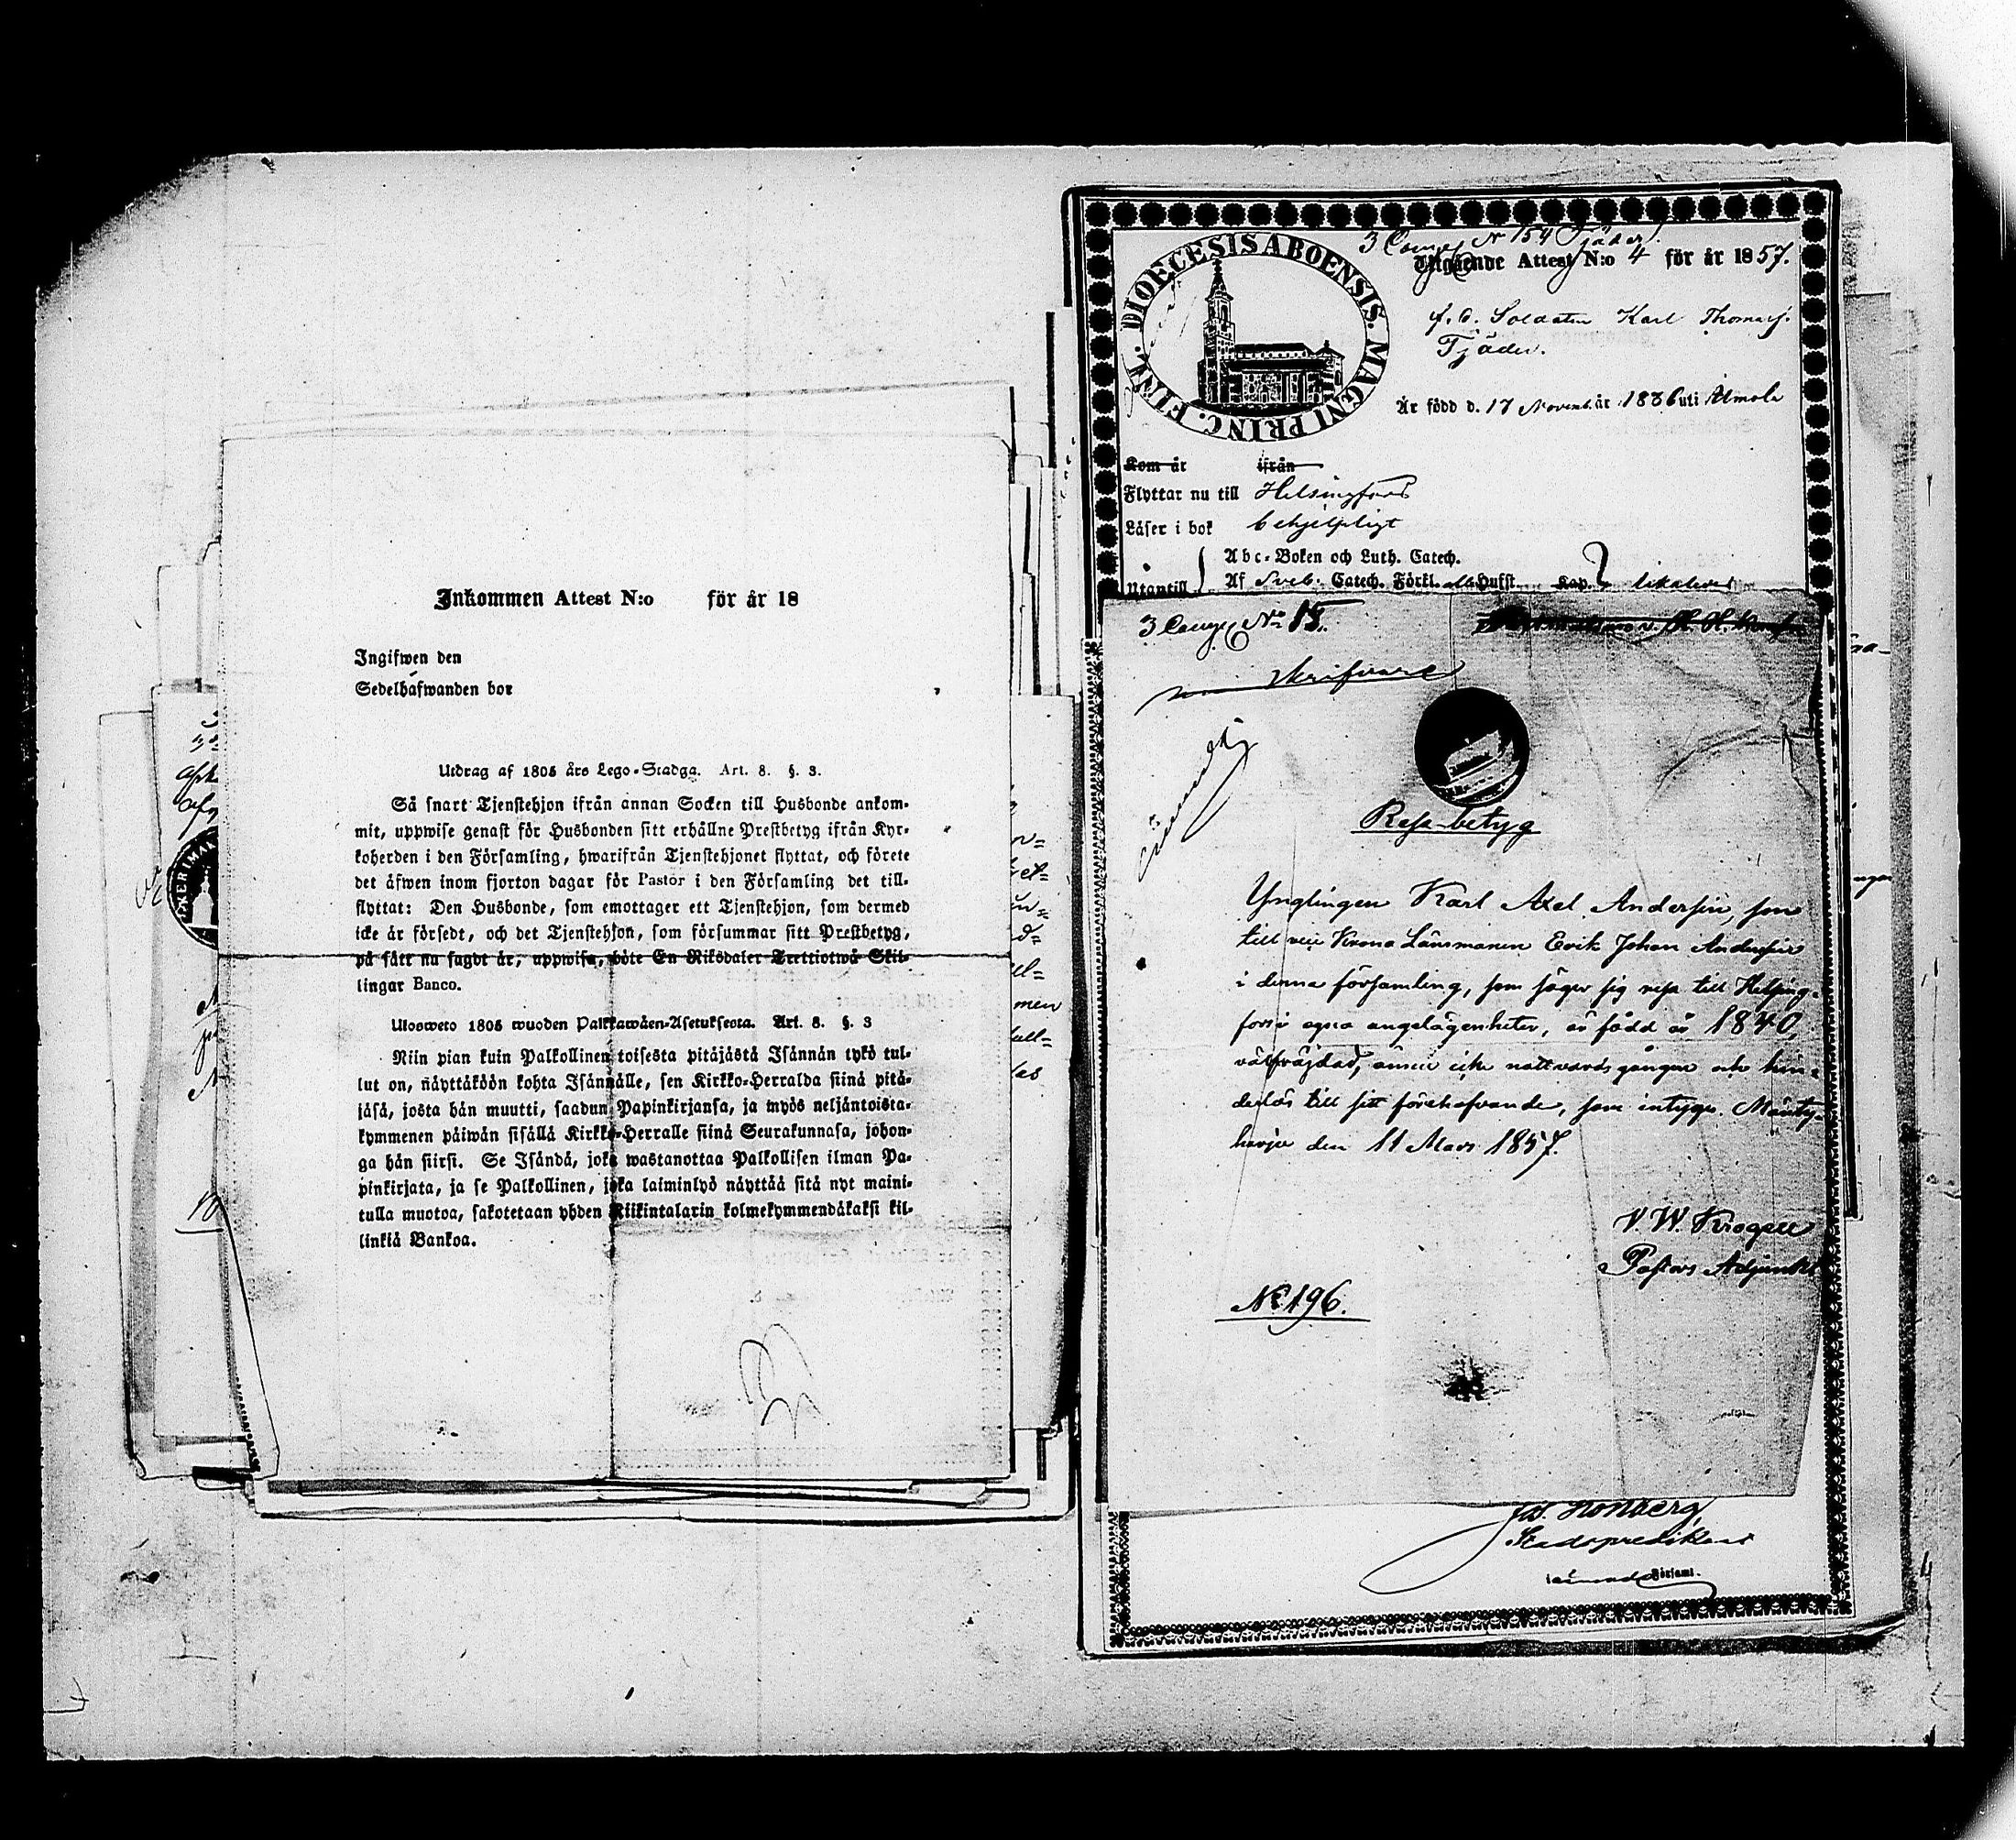 Inkommen Attest N:o för år 18
Ingifwen den
Sedelhafwanden bor
Utdrag af 1805 års Lego-Stadga. Art. 8. §. 3.
Så snart Tjenstehjon ifrån annan Socken till Husbonde ankom-
mit, uppwise genast för Husbonden sitt erhållne Prestbetyg ifrån Kyr-
koherden i den Församling, hwarifrån Tjenstehjonet flyttat, och förete
det äfwen inom fjorton dagar för Pastor i den Församling det till-
flyttat: Den Husbonde, som emottager ett Tjenstehjon, som dermed
icke är försedt, och det Tjenstehjon, som försummar sitt Prestbetyg,
på sätt nu sagdt är, uppwisa, böte En Riksdaler Trettiotwå Skil-
lingar Banco.
Ulosweto 1805 wuoden Palkkawäen-Asetuksesta. Art. 8. §. 3
Niin pian kuin Palkollinen toisesta pitäjästä Isännän tykö tul-
lut on, näyttäköön kohta Isännälle, sen Kirkko-Herralda siinä pitä-
jäsä, josta hän muutti, saadun Papinkirjansa, ja myös neljäntoista-
kymmenen päiwän sisällä Kirkko-Herralle siinä Seurakunnasa, johon-
ga hän siirsi. Se Isändä, joka wastanottaa Palkollisen ilman Pa-
pinkirjata, ja se Palkollinen, joka laiminlyö näyttää sitä nyt maini-
tulla muotoa, sakotetaan yhden Riikintalarin kolmekymmendäkaksi kil-
linkiä Bankoa.
DIOECESIS ABOENSIS. MAGNI PRINC. FINL.
N 154 Tjäder.
Utgående Attest N:o 4 för år 1857.
f. d. Soldaten Karl Thomasf.
Tjäder.
Är född d. 17 Novemb. år 1836 uti Umola
Kom år ifrån
Flyttar nu till Helsingfors
Läser i bok behjelpligt
Abc-Boken och Luth. Catech.
Utantill Af Sveb. Catech. Förkl. Hufst. Kap. likaledes
3 No 15.
skrifvare
Rese-betyg
Ynglingen Karl Axel Andersin, son
till Krono Länsmannen Erik Johan Andersin
i denna församling, som säger sig resa till Helsing-
fors i egna angelägenheter, är född år 1840,
välfräjdad, ännu icke nattvardsgången och hin-
derlös till sitt förehafvande, som intygas. Mänty-
harju den 11 Mars 1857.
V. W. Krogell
Pastors Adjunkt
No 196.
Stadspredikant
Församl.